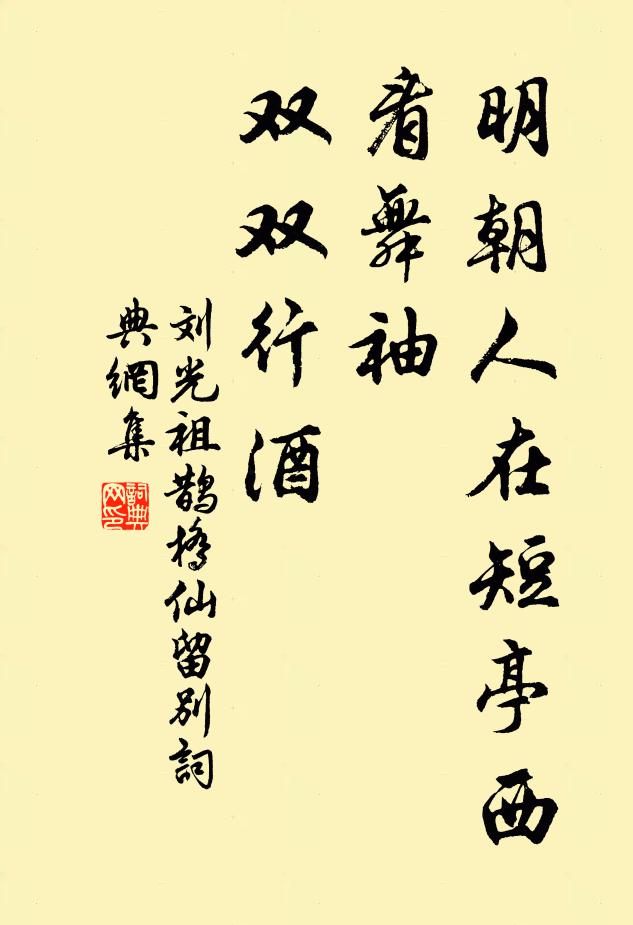 明朝人在短亭西
看舞袖
双双行酒
刘光祖鹊桥仙留别詞
典網集
詞典
网印